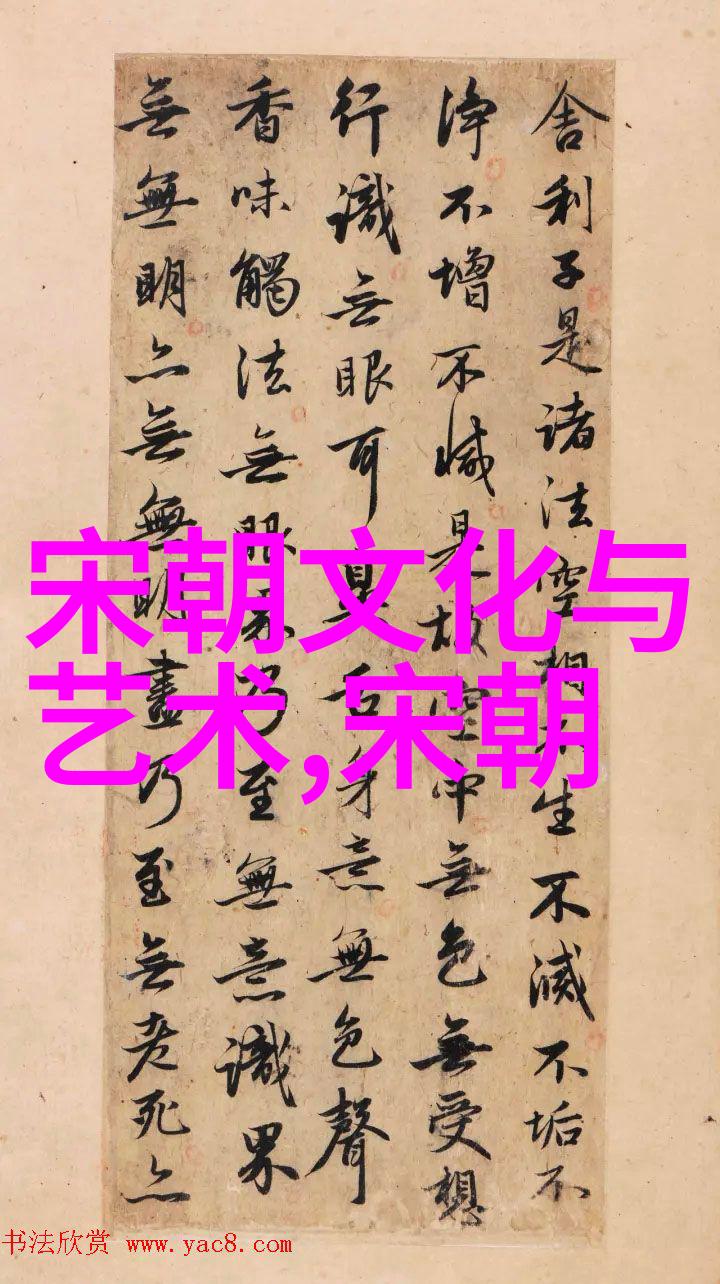 舍利子是諸法空相不生不滅不垢不
淨不增不減是故空中無色無受想
行識無眼耳鼻舌身意無色聲
香味觸法無眼界乃至無意識界
無無明亦無無明盡乃至無老死亦
宋朝文化与
艺术,宋朝
书法欣赏 www.yac8.com